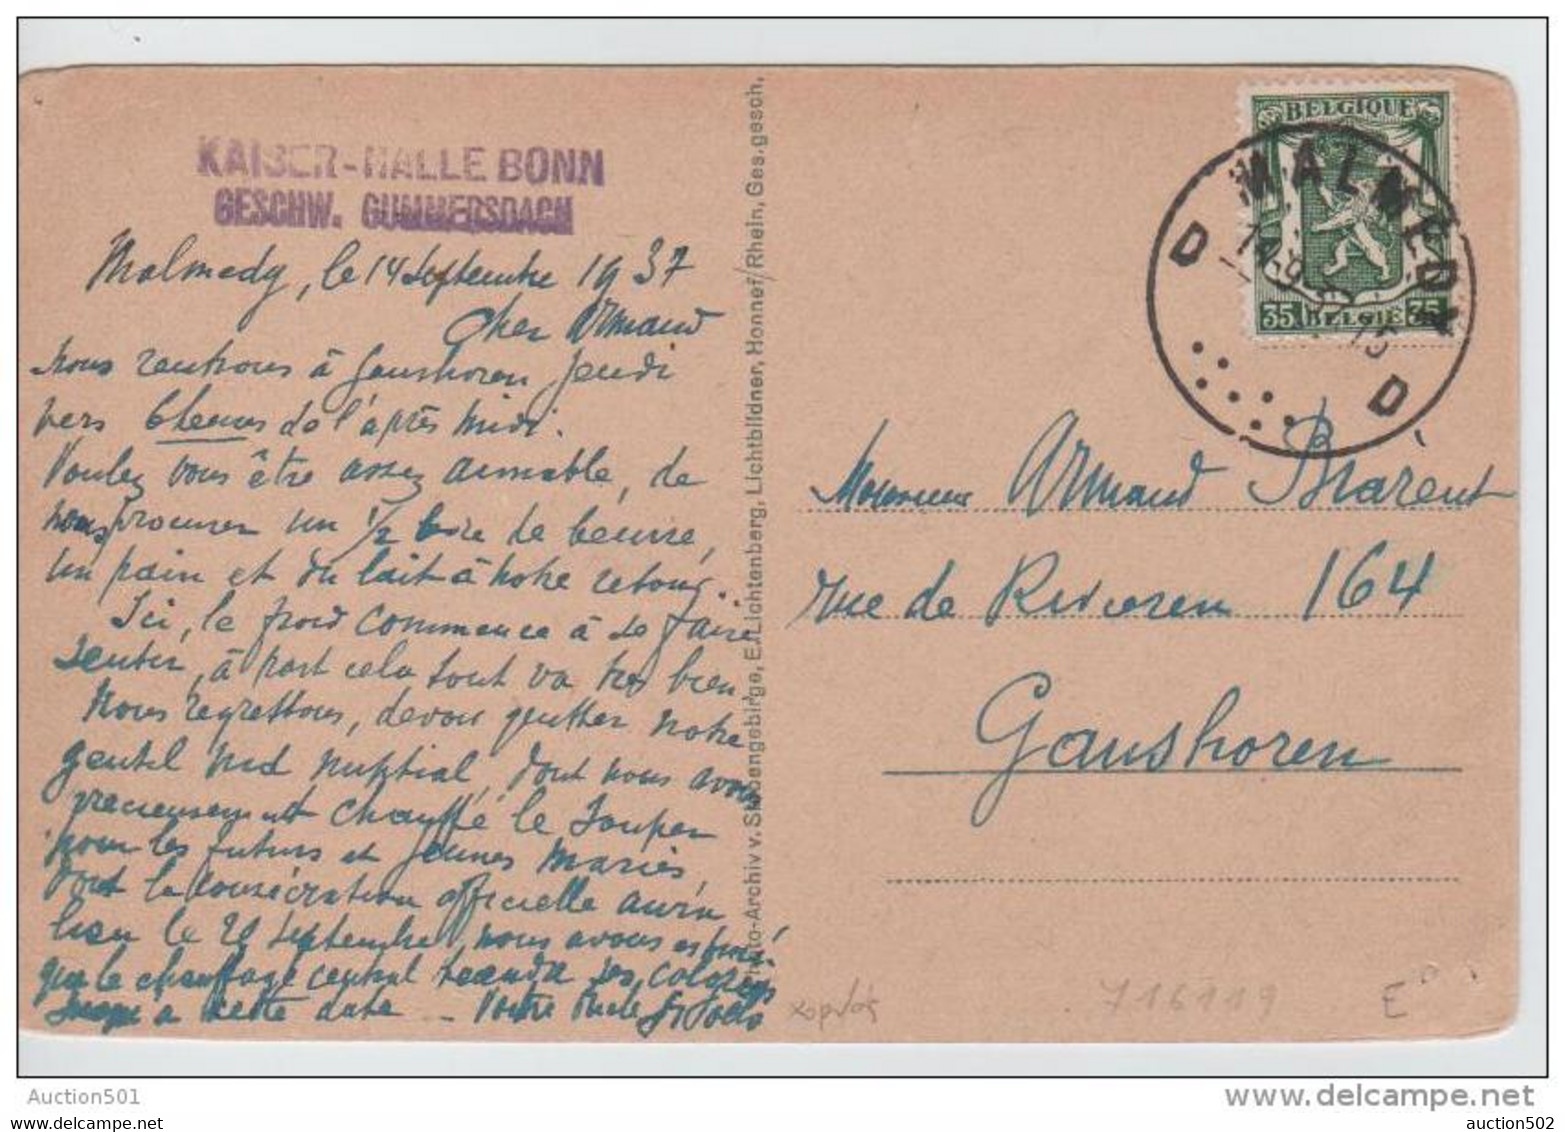 KAISER-HALLE BONN
GESCHW. GUMMERSBACH
Malmedy, le 14 septembre 1937
Cher Armand
Nous rentrons à Ganshoren jeudi
vers 6 heures de l'après midi.
Voulez vous être assez aimable, de
nous procurer un 1/2 de beurre,
un pain et du lait à notre retour.
Ici, le froid commence à se faire
sentir, à part cela tout va très bien
Nous regrettons, devoir quitter notre
gentil nid nuptial, dont nous avons
précieusement chauffé le
pour les futurs et jeunes mariés,
dont la consécration officielle aura
lieu le 20 septembre, nous avons espéré
que le chauffage central tiendra ses calories
jusqu'à cette date - Votre oncle
Photo-Archiv v. Siebengebirge, E. Lichtenberg, Lichtbildner, Honnef/Rhein, Ges. gesch.
BELGIQUE
35 BELGIË 35
MALMEDY
D D
Monsieur Armand
rue de 164
Ganshoren
716119
E
Auction501
www.delcampe.net
auction502